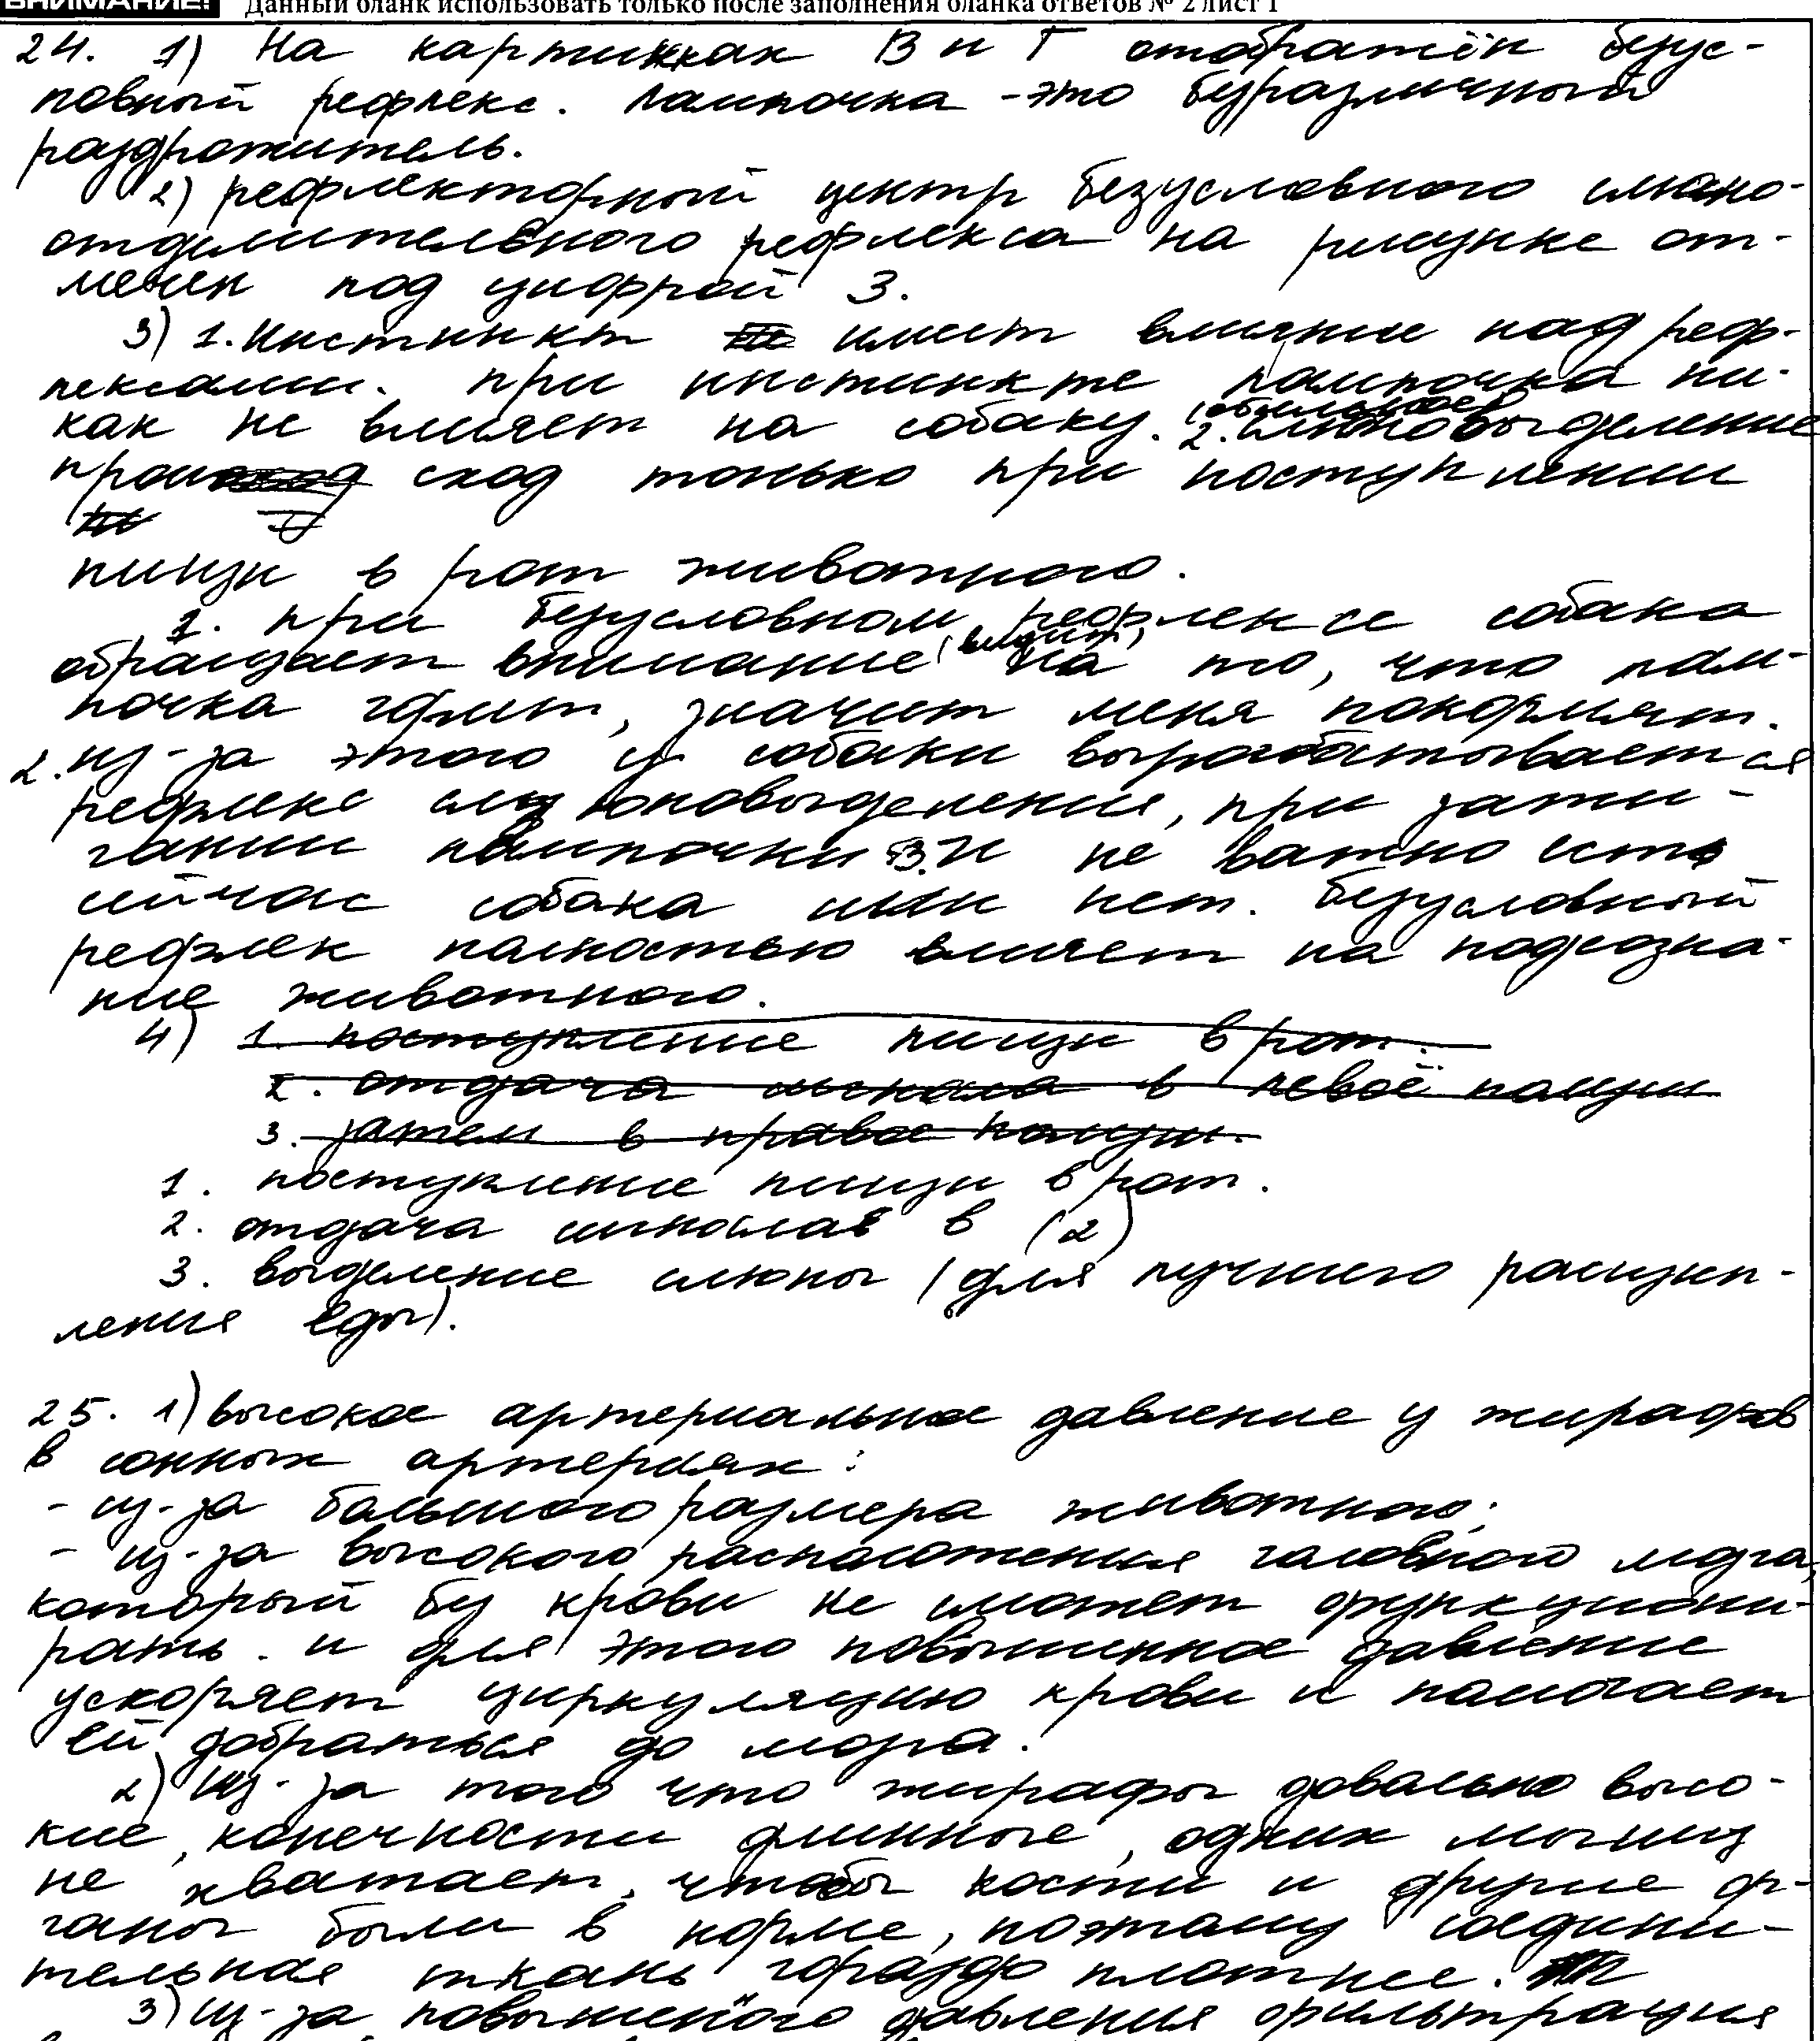 ВНИМАНИЕ! Данный бланк использовать только после заполнения бланка ответов № 2 лист 1
24. 1) На картинках В и Г отображён безус-
ловный рефлекс. Лампочка - это безразличный
раздражитель.
2) рефлекторный центр безусловного слюно-
отделительного рефлекса на рисунке от-
мечен под цифрой 3.
3) 1. Инстинкт имеет влияние над реф-
лексами. при инстинкте лампочка ни-
как не влияет на собаку. 2. слюновыделение
происход только при поступлении
пищи в рот животного.
1. при безусловном рефлексе собака
обращает внимание на то, что лам-
почка горит, значит меня покормят.
2. из-за этого у собаки вырабатывается
рефлекс слюновыделения, при зажи-
гании лампочки 3. И не важно есть
сейчас собака или нет. безусловный
рефлек полностью влияет на подсозна-
ние животного.
4) 1. поступление пищи в рот.
2. отдача сигнала в левое полуш
3. затем в правое полуш.
1. поступление пищи в рот.
2. отдача сигнала в (2)
3. выделение слюны (для лучшего расщеп-
ления еды).
25. 1) высокое артериальное давление у жирафов
в сонных артериях:
- из-за большого размера животного;
- из-за высокого расположения головного мозга,
который без крови не сможет функциони-
рать. и для этого повышенное давление
ускоряет циркуляцию крови и помогает
ей добраться до мозга.
2) Из-за того что жирафы довольно высо-
кие, конечности длинные, одних мышц
не хватает, чтобы кости и другие ор-
ганы были в норме, поэтому соедини-
тельная ткань гораздо плотнее.
3) из-за повышеного давления фильтрация